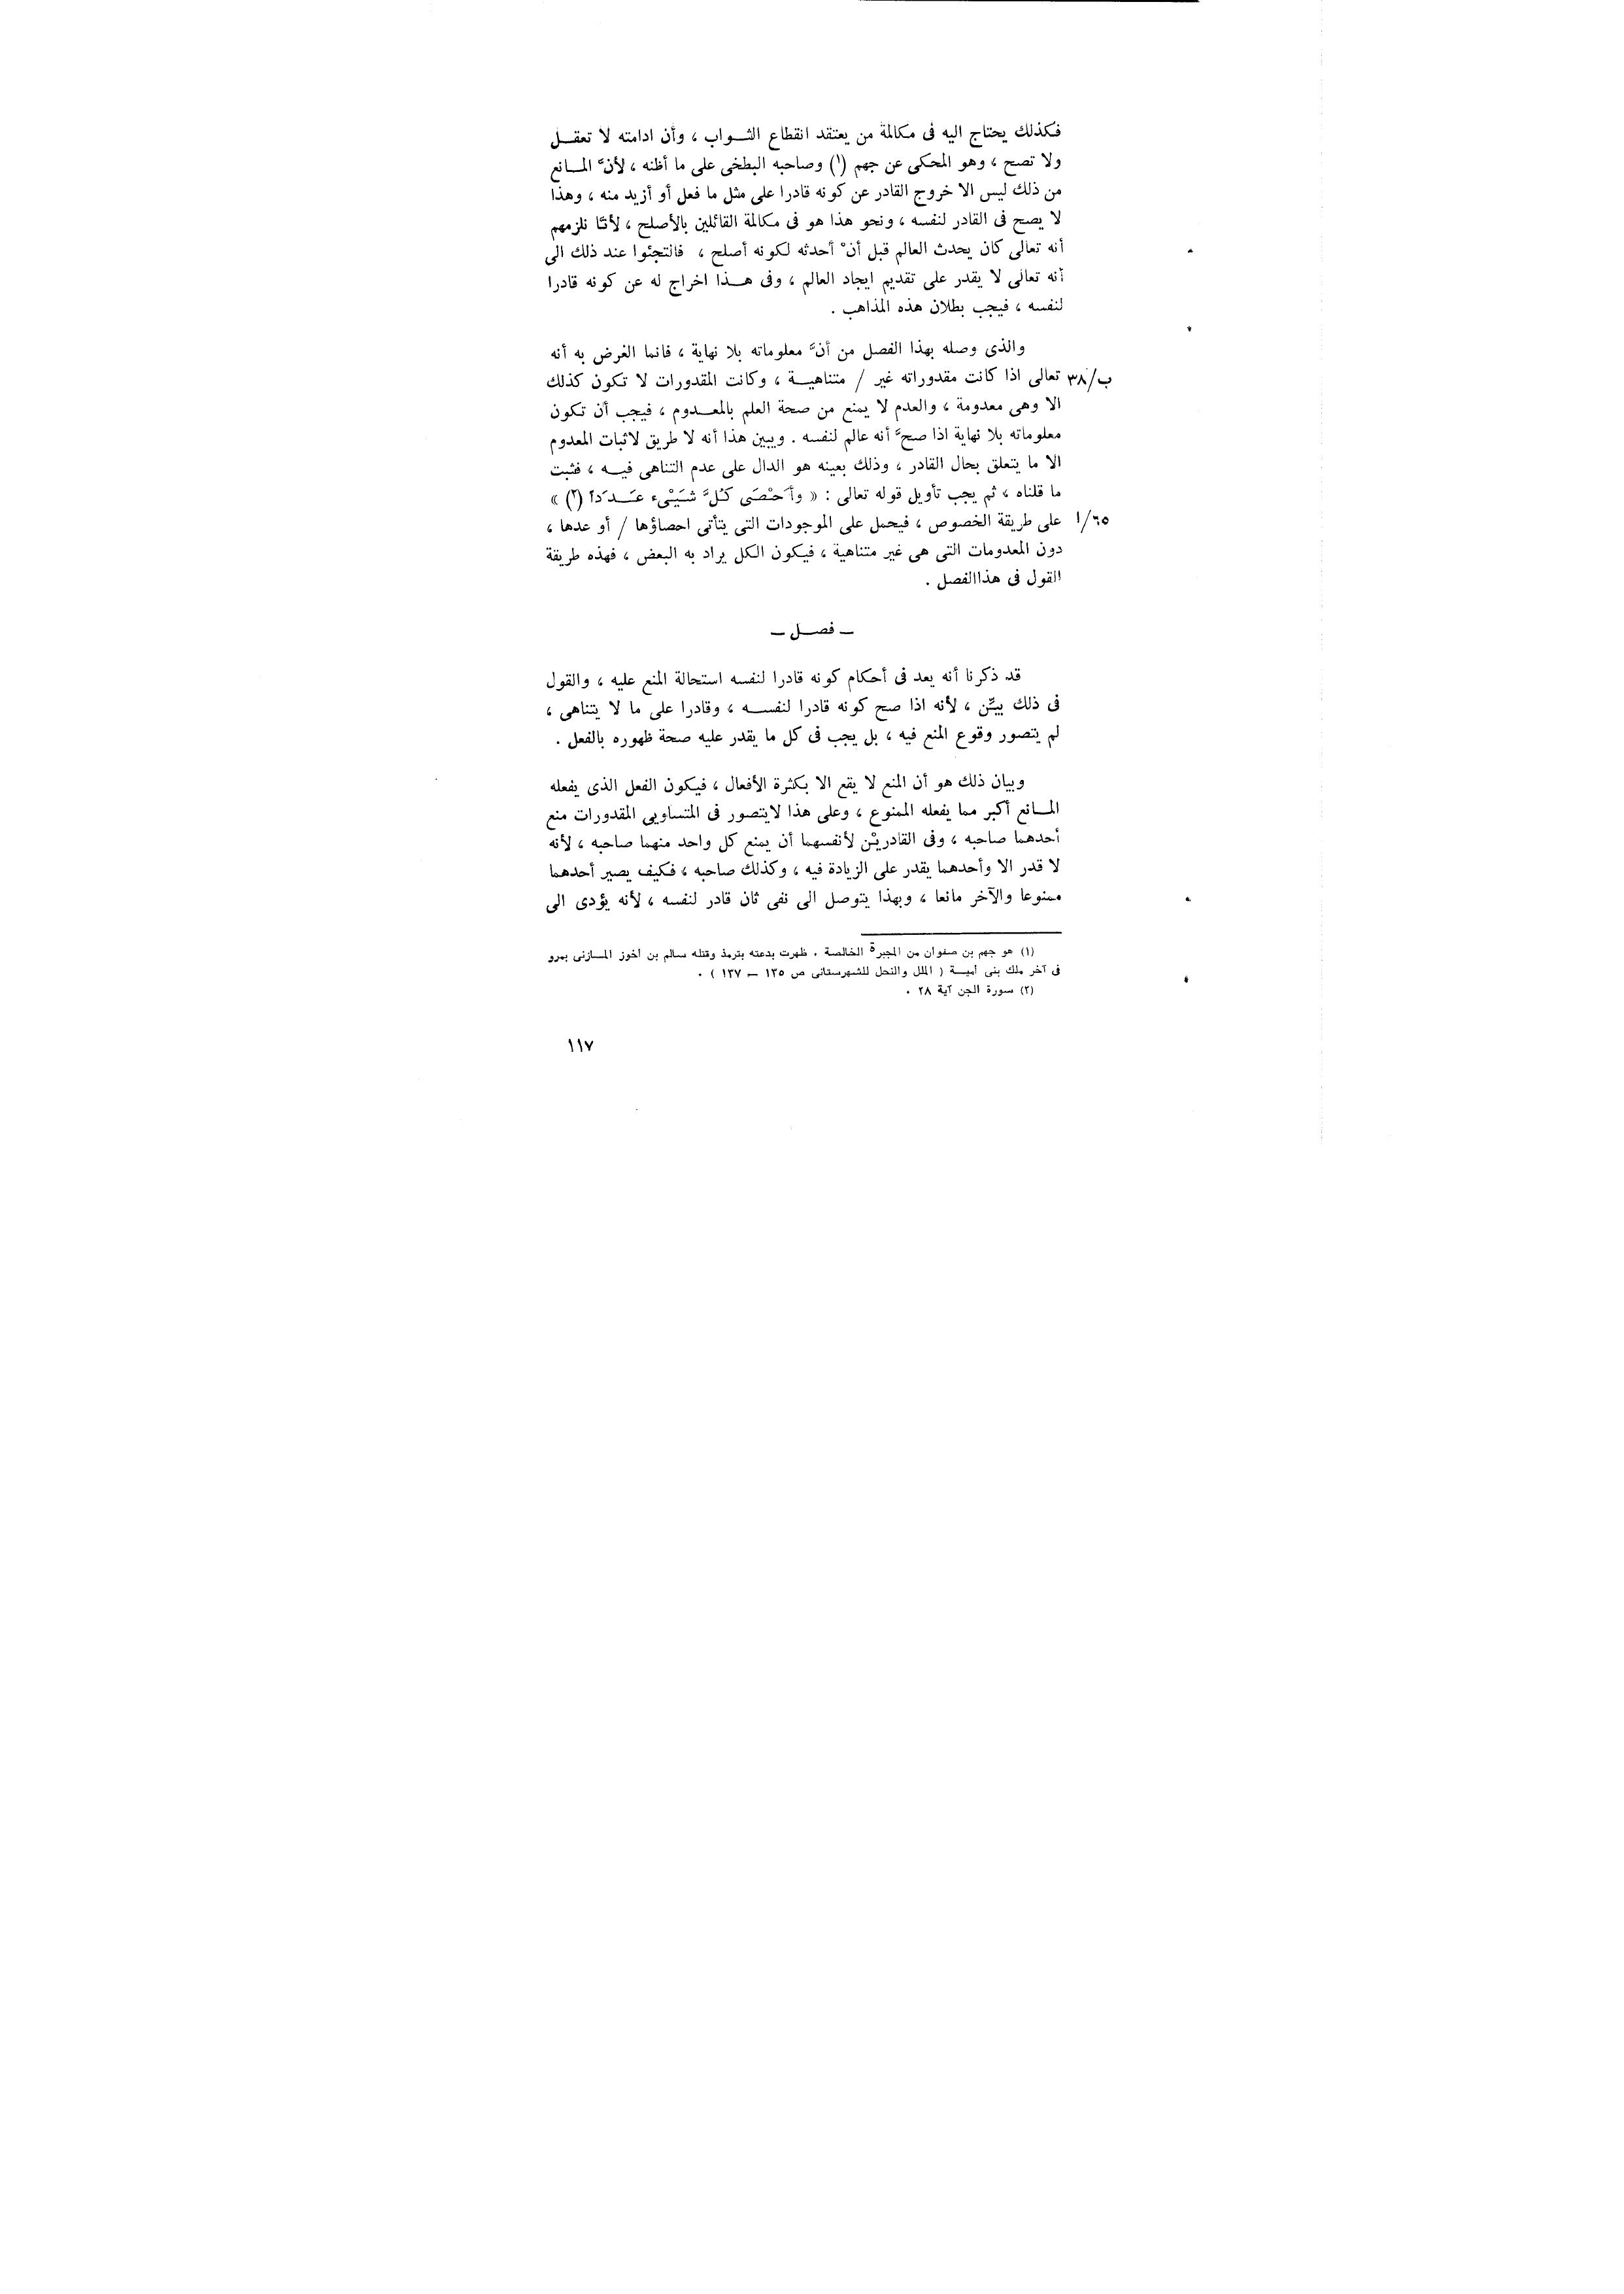 فكذلك يحتاج اليه فى مكالمة من يعتقد انقطاع الثـــواب ، وأن ادامته لا تعقـــل
ولا تصح ، وهو المحكى عن جهم (١) وصاحبه البطخى على ما أظنه ، لأنَّ المـــانع
من ذلك ليس الا خروج القادر عن كونه قادرا على مثل ما فعل أو أزيد منه ، وهذا
لا يصح فى القادر لنفسه ، ونحو هذا هو فى مكالمة القائلين بالأصلح ، لأنتا نلزمهم
أنه تعالى كان يحدث العالم قبل أنْ أحدثه لكونه أصلح ، فالتجئوا عند ذلك الى
أنه تعالى لا يقدر على تقديم ايجاد العالم ، وفى هـــذا اخراج له عن كونه قادرا
لنفسه ، فيجب بطلان هذه المذاهب .
والذى وصله بهذا الفصل من أنَّ معلوماته بلا نهاية ، فانما الغرض به أنه
ب/٣٨ تعالى اذا كانت مقدوراته غير / متناهيـــة ، وكانت المقدورات لا تكون كذلك
الا وهى معدومة ، والعدم لا يمنع من صحة العلم بالمعـــدوم ، فيجب أن تكون
معلوماته بلا نهاية اذا صحَّ أنه عالم لنفسه . ويبين هذا أنه لا طريق لاثبات المعدوم
الا ما يتعلق بحال القادر ، وذلك بعينه هو الدال على عدم التناهى فيـــه ، فثبت
ما قلناه ، ثم يجب تأويل قوله تعالى : « وأَحْصَى كُلَّ شَيْىء عَـــدَداً (٢) »
٦٥/ا على طريقة الخصوص ، فيحمل على الموجودات التى يتأتى احصاؤها / أو عدها ،
دون المعدومات التى هى غير متناهية ، فيكون الكل يراد به البعض ، فهذه طريقة
القول فى هذاالفصل .
ــ فصـــل ــ
قد ذكرنا أنه يعد فى أحكام كونه قادرا لنفسه استحالة المنع عليه ، والقول
فى ذلك بيِّن ، لأنه اذا صح كونه قادرا لنفســـه ، وقادرا على ما لا يتناهى ،
لم يتصور وقوع المنع فيه ، بل يجب فى كل ما يقدر عليه صحة ظهوره بالفعل .
وبيان ذلك هو أن المنع لا يقع الا بكثرة الأفعال ، فيكون الفعل الذى يفعله
المـــانع أكبر مما يفعله الممنوع ، وعلى هذا لايتصور فى المتساويى المقدورات منع
أحدهما صاحبه ، وفى القادريْن لأنفسهما أن يمنع كل واحد منهما صاحبه ، لأنه
لا قدر الا وأحدهما يقدر على الزيادة فيه ، وكذلك صاحبه ، فكيف يصير أحدهما
ممنوعا والآخر مانعا ، وبهذا يتوصل الى نفى ثان قادر لنفسه ، لأنه يؤدى الى
(١) هو جهم بن صفوان من المجبرة الخالصة . ظهرت بدعته بترمذ وقتله سالم بن أخوز المـــازنى بمرو
فى آخر ملك بنى أميـــة ( الملل والنحل للشهرستانى ص ١٣٥ ــ ١٣٧ ) .
(٢) سورة الجن آية ٢٨ .
١١٧